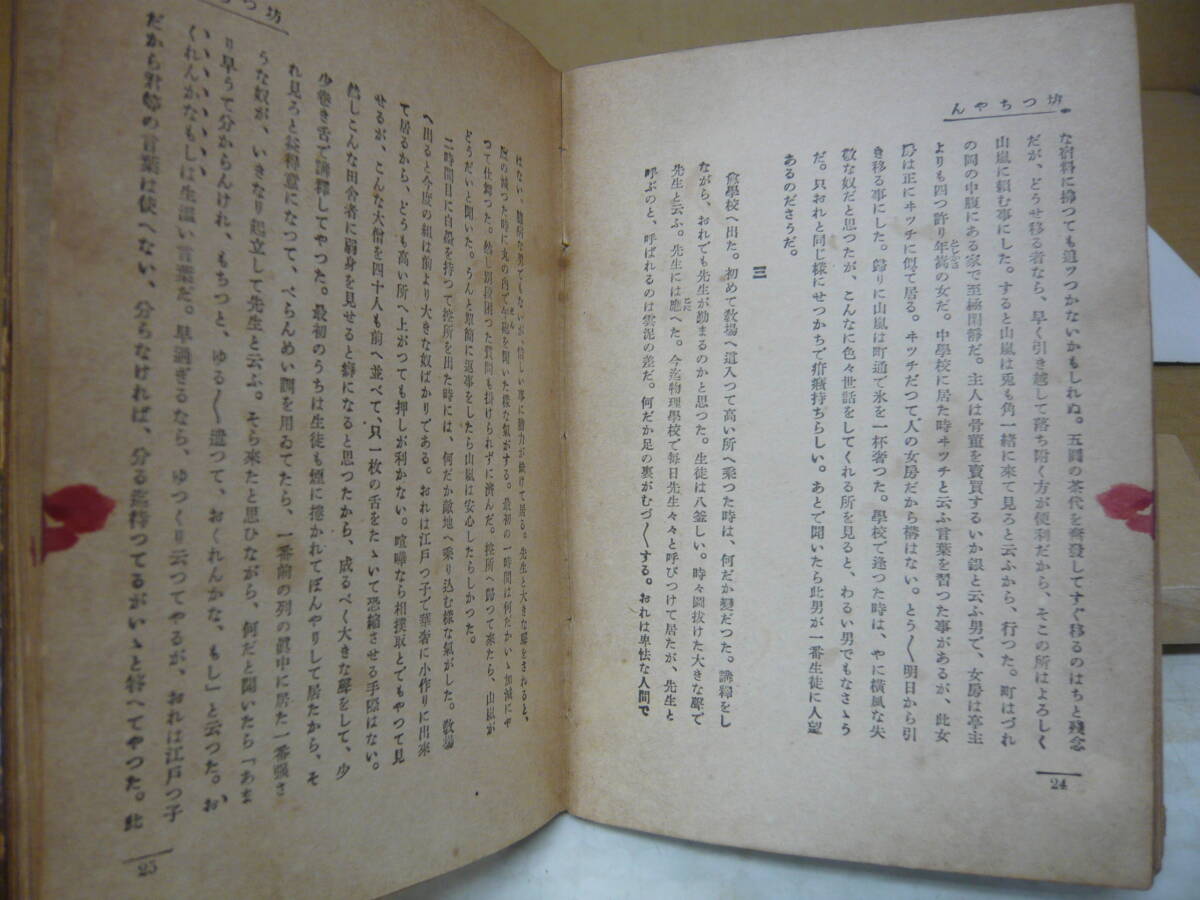 坊つちやん
な宿料に拂つても追ツつかないかもしれぬ。五圓の茶代を奮發してすぐ移るのはちと殘念
だが、どうせ移る者なら、早く引き越して落ち附く方が便利だから、そこの所はよろしく
山嵐に頼む事にした。すると山嵐は兎も角一緒に來て見ろと云ふから、行つた。町はづれ
の岡の中腹にある家で至極閑靜だ。主人は骨董を賣買するいか銀と云ふ男で、女房は亭主
よりも四つ許り年嵩の女だ。中學校に居た時ヰツチと云ふ言葉を習つた事があるが、此女
房は正にヰツチに似て居る。ヰツチだつて人の女房だから構はない。とう〳〵明日から引
き移る事にした。歸りに山嵐は町通で氷を一杯奢つた。學校で逢つた時は、やに橫風な失
敬な奴だと思つたが、こんなに色々世話をしてくれる所を見ると、わるい男でもなさゝう
だ。只おれと同じ樣にせつかちで疳癪持ちらしい。あとで聞いたら此男が一番生徒に人望
あるのださうだ。
三
愈學校へ出た。初めて敎場へ這入つて高い所へ乘つた時は、何だか變だつた。講釋をし
ながら、おれでも先生が勤まるのかと思つた。生徒は八釜しい。時々圖拔けた大きな聲で
先生と云ふ。先生には應へた。今迄物理學校で每日先生々々と呼びつけて居たが、先生と
呼ぶのと、呼ばれるのは雲泥の差だ。何だか足の裏がむづ〳〵する。おれは卑怯な人間で
24
はない、臆病な男でもないが、惜しい事に膽力が缺けて居る。先生と大きな聲をされると、
腹の減つた時に丸の内で午砲を聞いた樣な氣がする。最初の一時間は何だかいゝ加減にや
つて仕舞つた。然し別段困つた質問も掛けられずに濟んだ。控所へ歸つて來たら、山嵐が
どうだいと聞いた。うんと單簡に返事をしたら山嵐は安心したらしかつた。
二時間目に白墨を持つて控所を出た時には、何だか敵地へ乘り込む樣な氣がした。敎場
へ出ると今度の組は前より大きな奴ばかりである。おれは江戸つ子で華奢に小作りに出來
て居るから、どうも高い所へ上がつても押しが利かない。喧嘩なら相撲取とでもやつて見
せるが、こんな大僧を四十人も前へ並べて、只一枚の舌をたゝいて恐縮させる手際はない。
然しこんな田舎者に弱身を見せると癖になると思つたから、成るべく大きな聲をして、少
少卷き舌で講釋してやつた。最初のうちは生徒も煙に捲かれてぼんやりして居たから、そ
れ見ろと益得意になつて、べらんめい調を用ゐてたら、一番前の列の眞中に居た一番强さ
うな奴が、いきなり起立して先生と云ふ。そら來たと思ひながら、何だと聞いたら「あま
り早うて分からんけれ、もちつと、ゆる〳〵遣つて、おくれんかな、もし」と云つた。お
くれんかなもしは生溫い言葉だ。早過ぎるなら、ゆつくり云つてやるが、おれは江戸つ子
だから君等の言葉は使へない、分らなければ、分る迄待つてるがいゝと答へてやつた。此
25